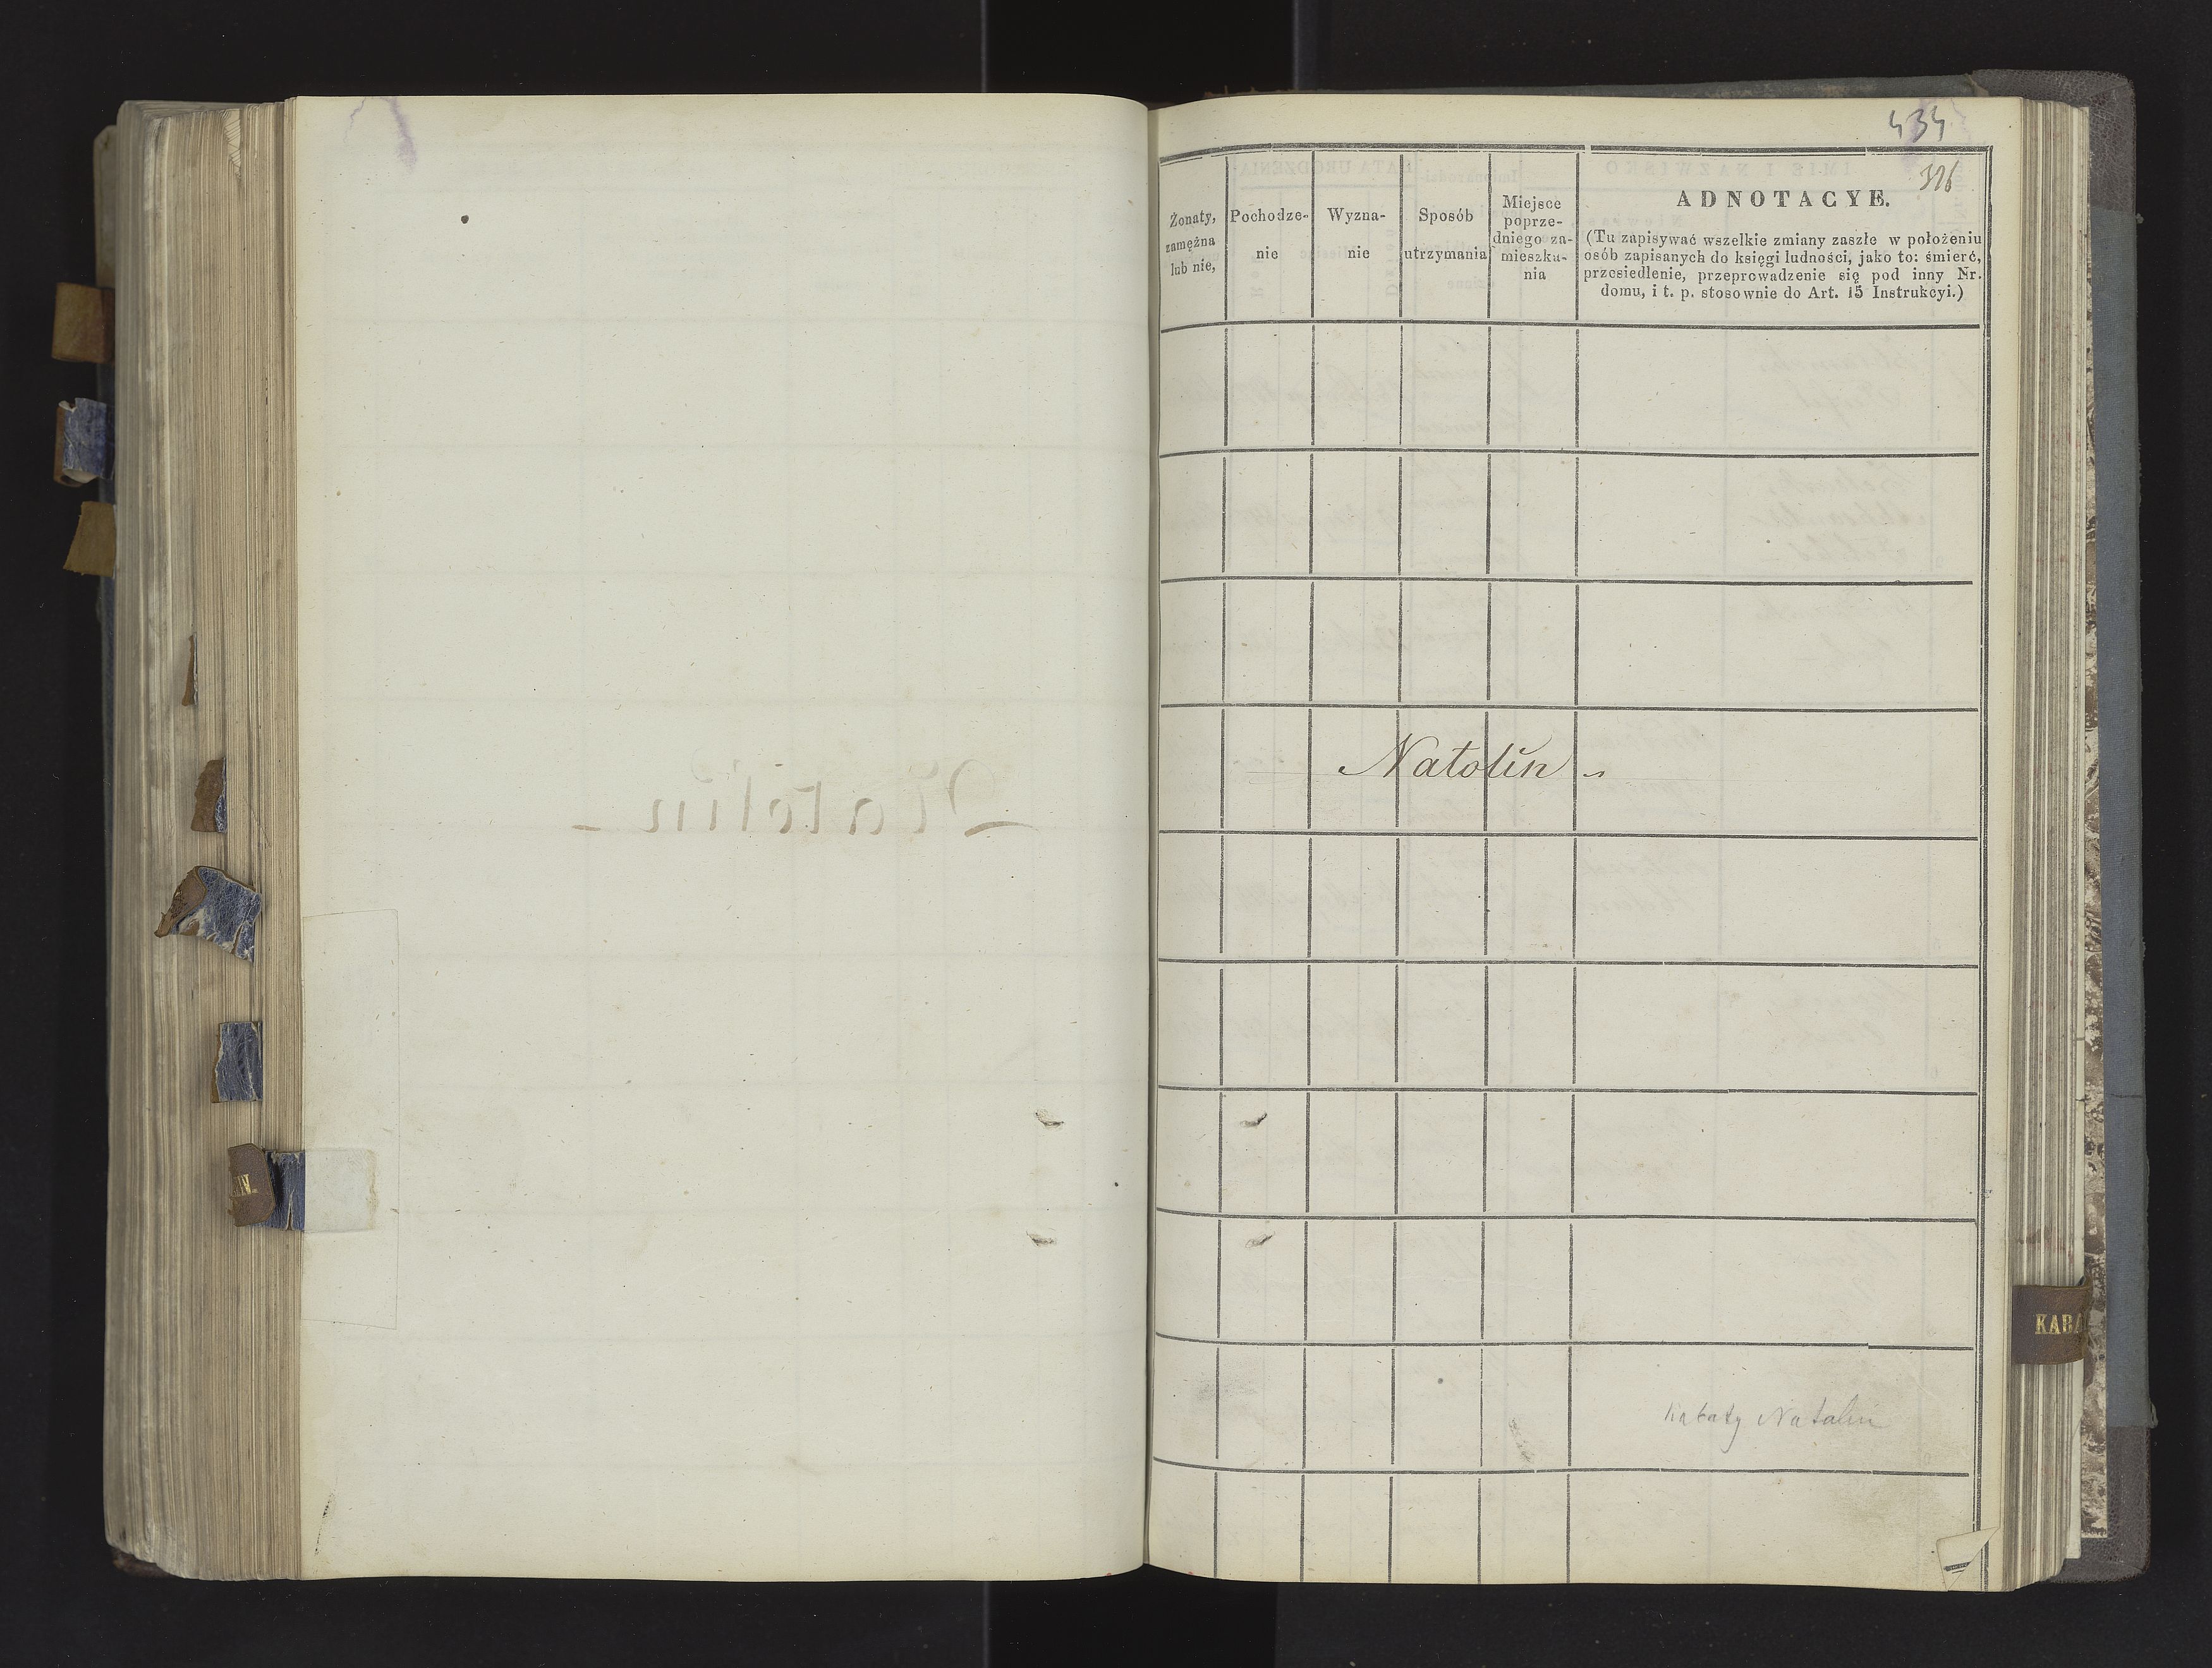 434
326
Żonaty,
zamężna
lub nie,
Pochodze-
nie
Wyzna-
nie
Sposób
utrzymania
Miejsce
poprze-
dniego za-
mieszka-
nia
ADNOTACYE.
(Tu zapisywać wszelkie zmiany zaszłe w położeniu
osób zapisanych do księgi ludności, jako to: śmierć,
przesiedlenie, przeprowadzenie się pod inny Nr.
domu, i t. p. stosownie do Art. 15 Instrukcyi.)
Natolin
Natolin
Kabaty Natalin
KABA